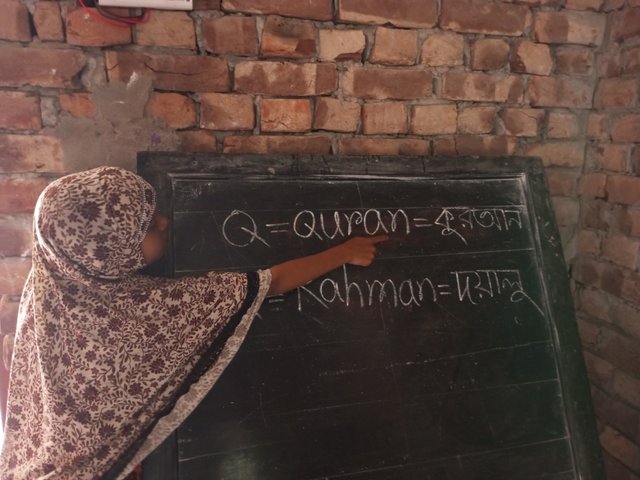 Q=Quran=কুরআন
=Rahman=দয়ালু